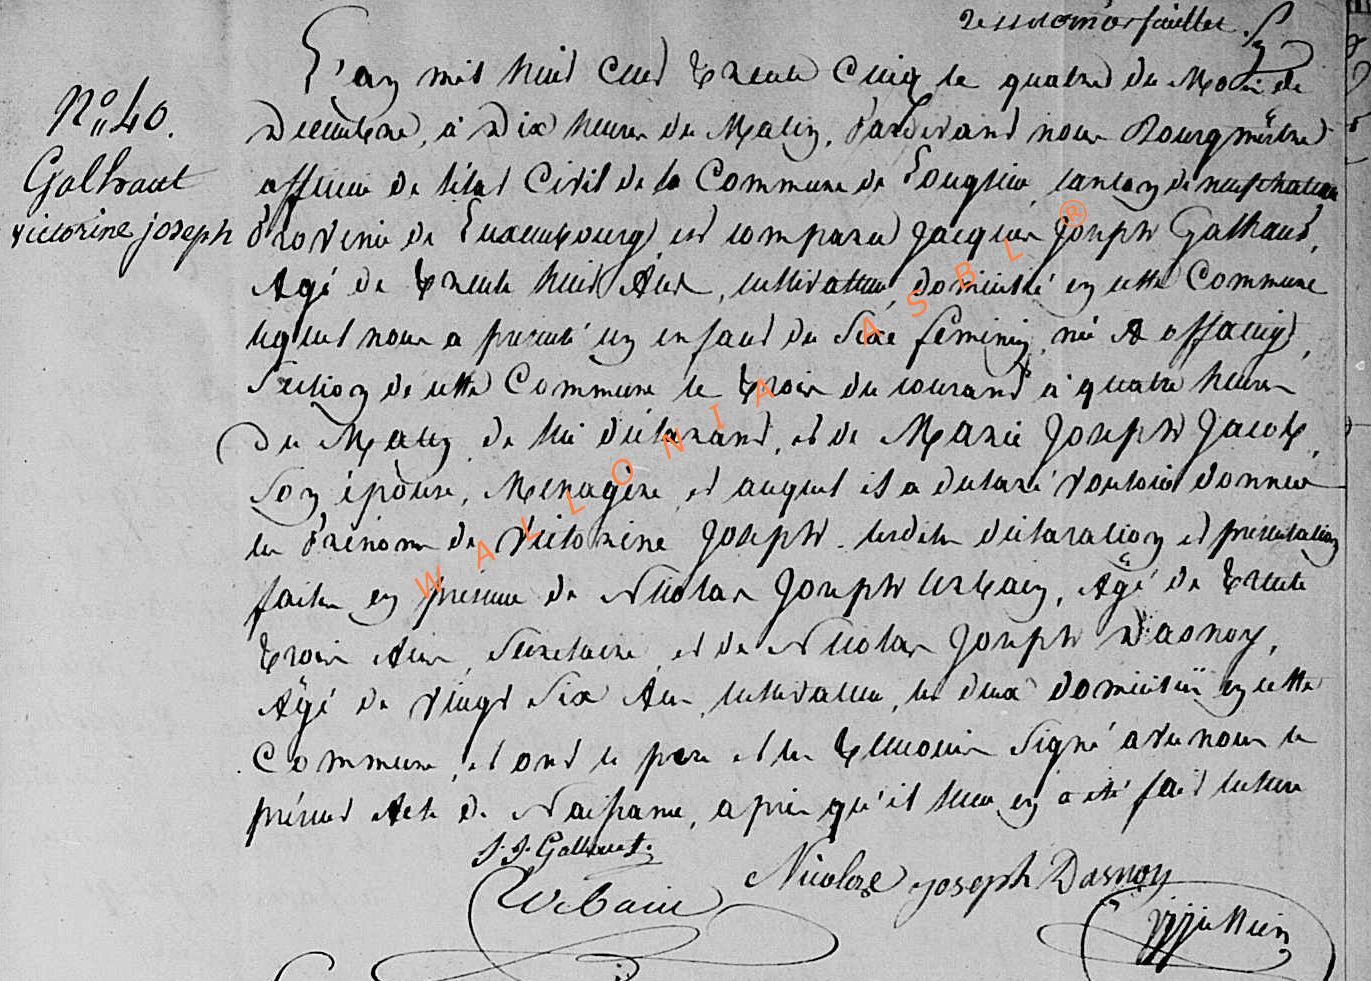 N° 40.
Galhaut
victorine joseph
L'an mil huit cent trente cinq le quatre du Mois de
Decembre, à Dix heures du Matin, Pardevant nous Bourgmestre
officier de l'état Civil de la Commune de Longlier canton de neufchateau
Province de Luxembourg, est comparu Jacques Joseph Galhaut,
Agé de trente huit Ans, cultivateur, domicilié en cette Commune
lequel nous a presenté un enfant du Sexe féminin, né à offaing,
Section de cette Commune le trois du courant à quatre heures
du Matin, de lui déclarant, et de Marie Joseph Jacob,
Son épouse, Menagère, et auquel il a declaré vouloir donner
les Prénoms de Victorine Joseph. Lesdites déclaration et présentation
faites en présence de Nicolas Joseph Urbain, Agé de trente
trois Ans, Secretaire, et de Nicolas Joseph Dasnoy,
Agé de vingt Six Ans, cultivateur, les deux domiciliés en cette
Commune, et ont le pere et les témoins Signé avec nous le
présent Acte de Naissance, après qu'il leur en a été fait lecture
J. J. Galhaut.
Nicolas joseph Dasnoy
Urbain
WALLONIA ASBL ®